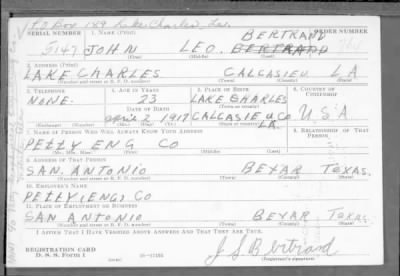 P.O Box 149 Lake Charles, La.
SERIAL NUMBER 1. NAME (Print) BERTRAND ORDER NUMBER
JOHN LEO. BERTRAND
(First) (Middle) (Last)
2. ADDRESS (Print)
LAKE CHARLES CALCASIEU LA
(Number and street or R. F. D. number) (Town) (County) (State)
3. TELEPHONE 4. AGE IN YEARS 5. PLACE OF BIRTH 6. COUNTRY OF CITIZENSHIP
NONE. 23 LAKE CHARLES
DATE OF BIRTH
April 2 1917 CALCASIEU Co LA. USA
(Exchange) (Number) (Mo.) (Day) (Yr.) (State or country)
7. NAME OF PERSON WHO WILL ALWAYS KNOW YOUR ADDRESS 8. RELATIONSHIP OF THAT PERSON
PETTY ENG CO
(Mr., Mrs., Miss) (First) (Middle) (Last)
9. ADDRESS OF THAT PERSON
SAN. ANTONIO BEXAR TEXAS.
(Number and street or R. F. D. number) (Town) (County) (State)
10. EMPLOYER'S NAME
PETTY (ENG) CO
11. PLACE OF EMPLOYMENT OR BUSINESS
SAN ANTONIO BEXAR TEXAS.
(Number and street or R. F. D. number) (Town) (County) (State)
I AFFIRM THAT I HAVE VERIFIED ABOVE ANSWERS AND THAT THEY ARE TRUE.
REGISTRATION CARD
D. S. S. Form 1 J L Bertrand
(over)